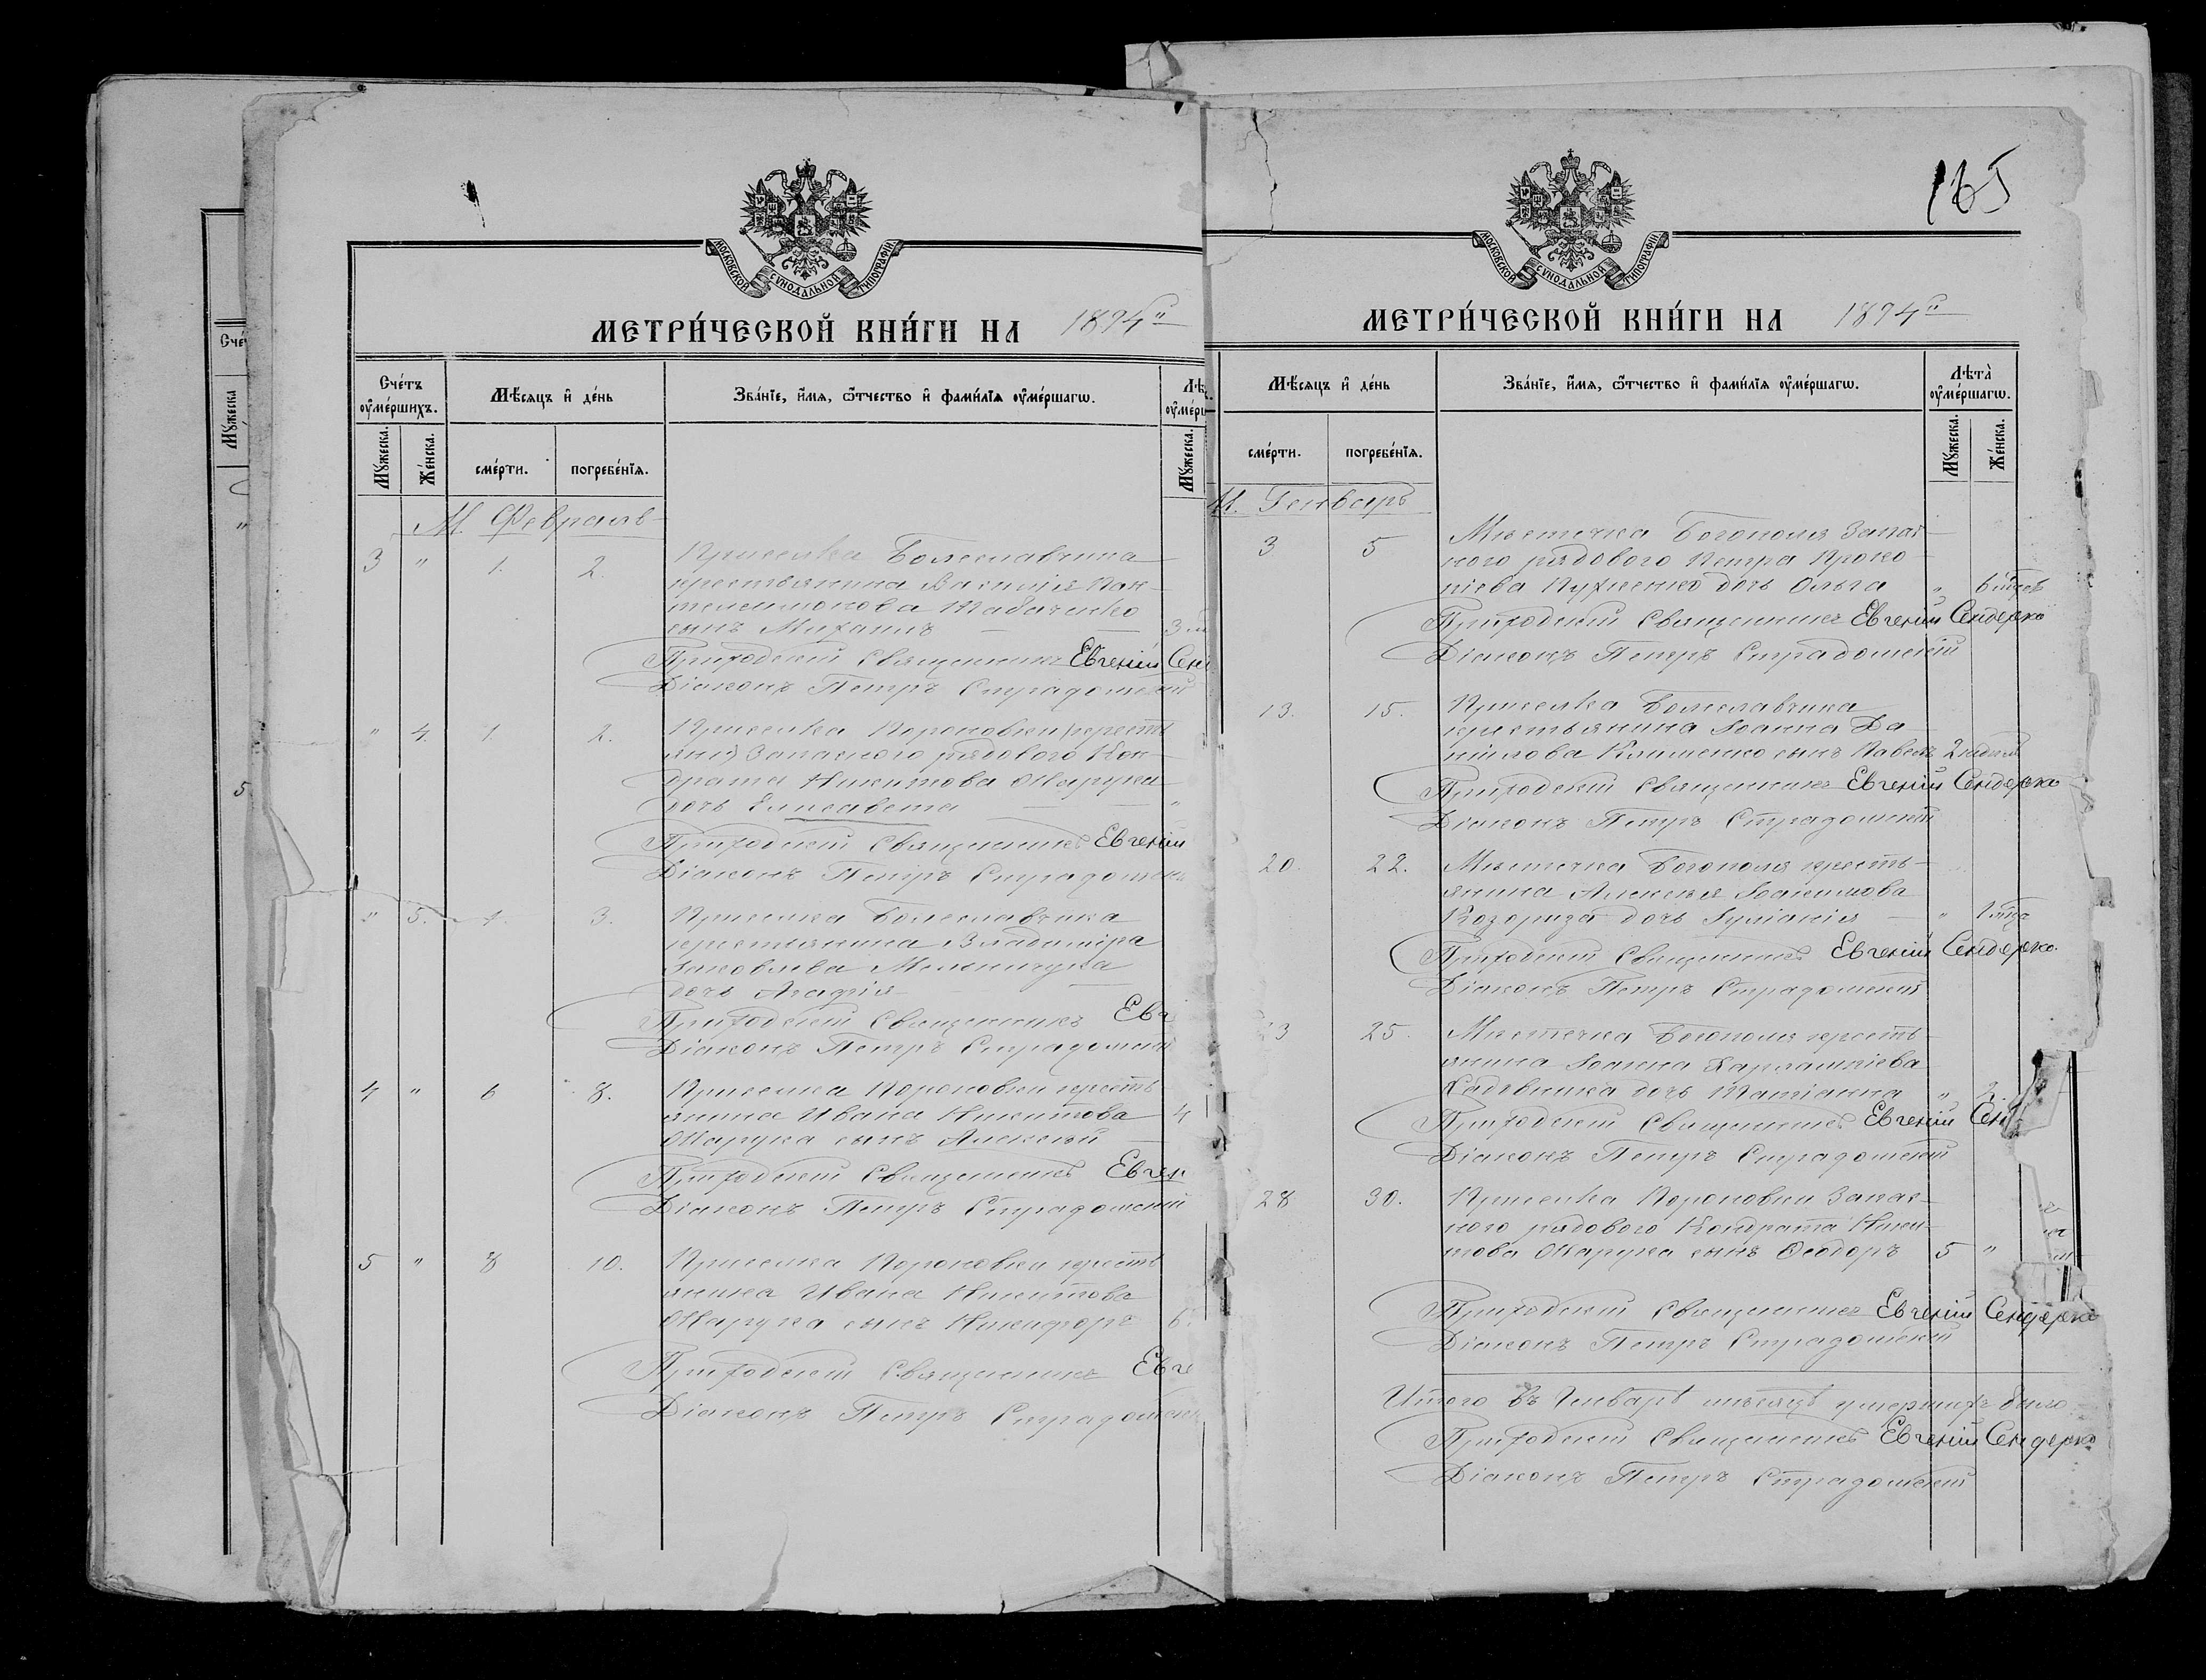 Счéтъ
Мꙋ́жеска
5
МОСКОВСКОЙ СѴНОДАЛЬНОЙ ТИПОГРАФІИ
МЕТРИ́ЧЕСКОЙ КНИ́ГИ НА 1894 г.
Счéтъ ᲂу҆мéршихъ.
Мꙋ́жеска. Жéнска.
Мѣ́сяцъ и҆ дéнь
смéрти. погребéнїѧ.
Звáнїе, и҆́мѧ, ѻ҆́тчество и҆ фамúлїѧ ᲂу҆мéршагѡ.
Мꙋ́жеска.
М. Февраль
3 " 1. 2. Приселка Болеславчика
крестьянина Василія Пан-
телеимонова Табаченко
сынъ Михаилъ 3 м
Приходскій Священникъ Евгеній Сен
Діаконъ Петръ Страдомскій
" 4. 1. 2. Приселка Пороковки (кресть
янъ) Запаснаго рядового Кон-
драта Никитова Маруха
дочь Елисавета "
Приходскій Священникъ Евгеній
Діаконъ Петръ Страдомскі
" 5. 1. 3. Приселка Болеславчика
крестьянина Владиміра
Іаковлева Мельничука
дочь Агафія
Приходскій Священникъ Евг
Діаконъ Петръ Страдомскі
4 " 6 8. Приселка Пороковки кресть
янина Ивана Никитова 4
Маруха сынъ Алексѣй
Приходскій Священникъ Евген
Діаконъ Петръ Страдомскій
5 " 8 10. Приселка Пороковки кресть
янина Ивана Никитова
Маруха сынъ Никифоръ 6
Приходскій Священникъ Евге
Діаконъ Петръ Страдомскі
165
МОСКОВСКОЙ СѴНОДАЛЬНОЙ ТИПОГРАФІИ
МЕТРИ́ЧЕСКОЙ КНИ́ГИ НА 1894 г.
Мѣ́сяцъ и҆ дéнь
смéрти. погребéнїѧ.
Звáнїе, и҆́мѧ, ѻ҆́тчество и҆ фамúлїѧ ᲂу҆мéршагѡ.
Лѣтà ᲂу҆мéршагѡ.
Мꙋ́жеска. Жéнска.
М. Генварь
3 5 Мѣстечка Богополя Запас-
ного рядового Петра Проко-
піева дочь Ольга "
Приходскій Священникъ Евгеній Сендерко
Діаконъ Петръ Страдомскій
13. 15. Приселка Болеславчика
крестьянина Іоанна Да
нилова Клименко сынъ Павелъ 2 недѣли
Приходскій Священникъ Евгеній Сендерко
Діаконъ Петръ Страдомскій
20. 22. Мѣстечка Богополя кресть-
янина Алексѣя Іоакимова
Козориза дочь Іуліанія "
Приходскій Священникъ Евгеній Сендерко.
Діаконъ Петръ Страдомскій
23 25. Мѣстечка Богополя кресть
янина Іоанна Харлампіева
дочь Татіанна " 2.
Приходскій Священникъ Евгеній Сен
Діаконъ Петръ Страдомскій
28 30. Приселка Пороковки Запас-
ного рядового Кондрата Ники-
това Маруха сынъ Ѳеодоръ 5 "
Приходскій Священникъ Евгеній Сендерко
Діаконъ Петръ Страдомскій
Итого въ Генварѣ мѣсяцѣ умершихъ было
Приходскій Священникъ Евгеній Сендерко
Діаконъ Петръ Страдомскій